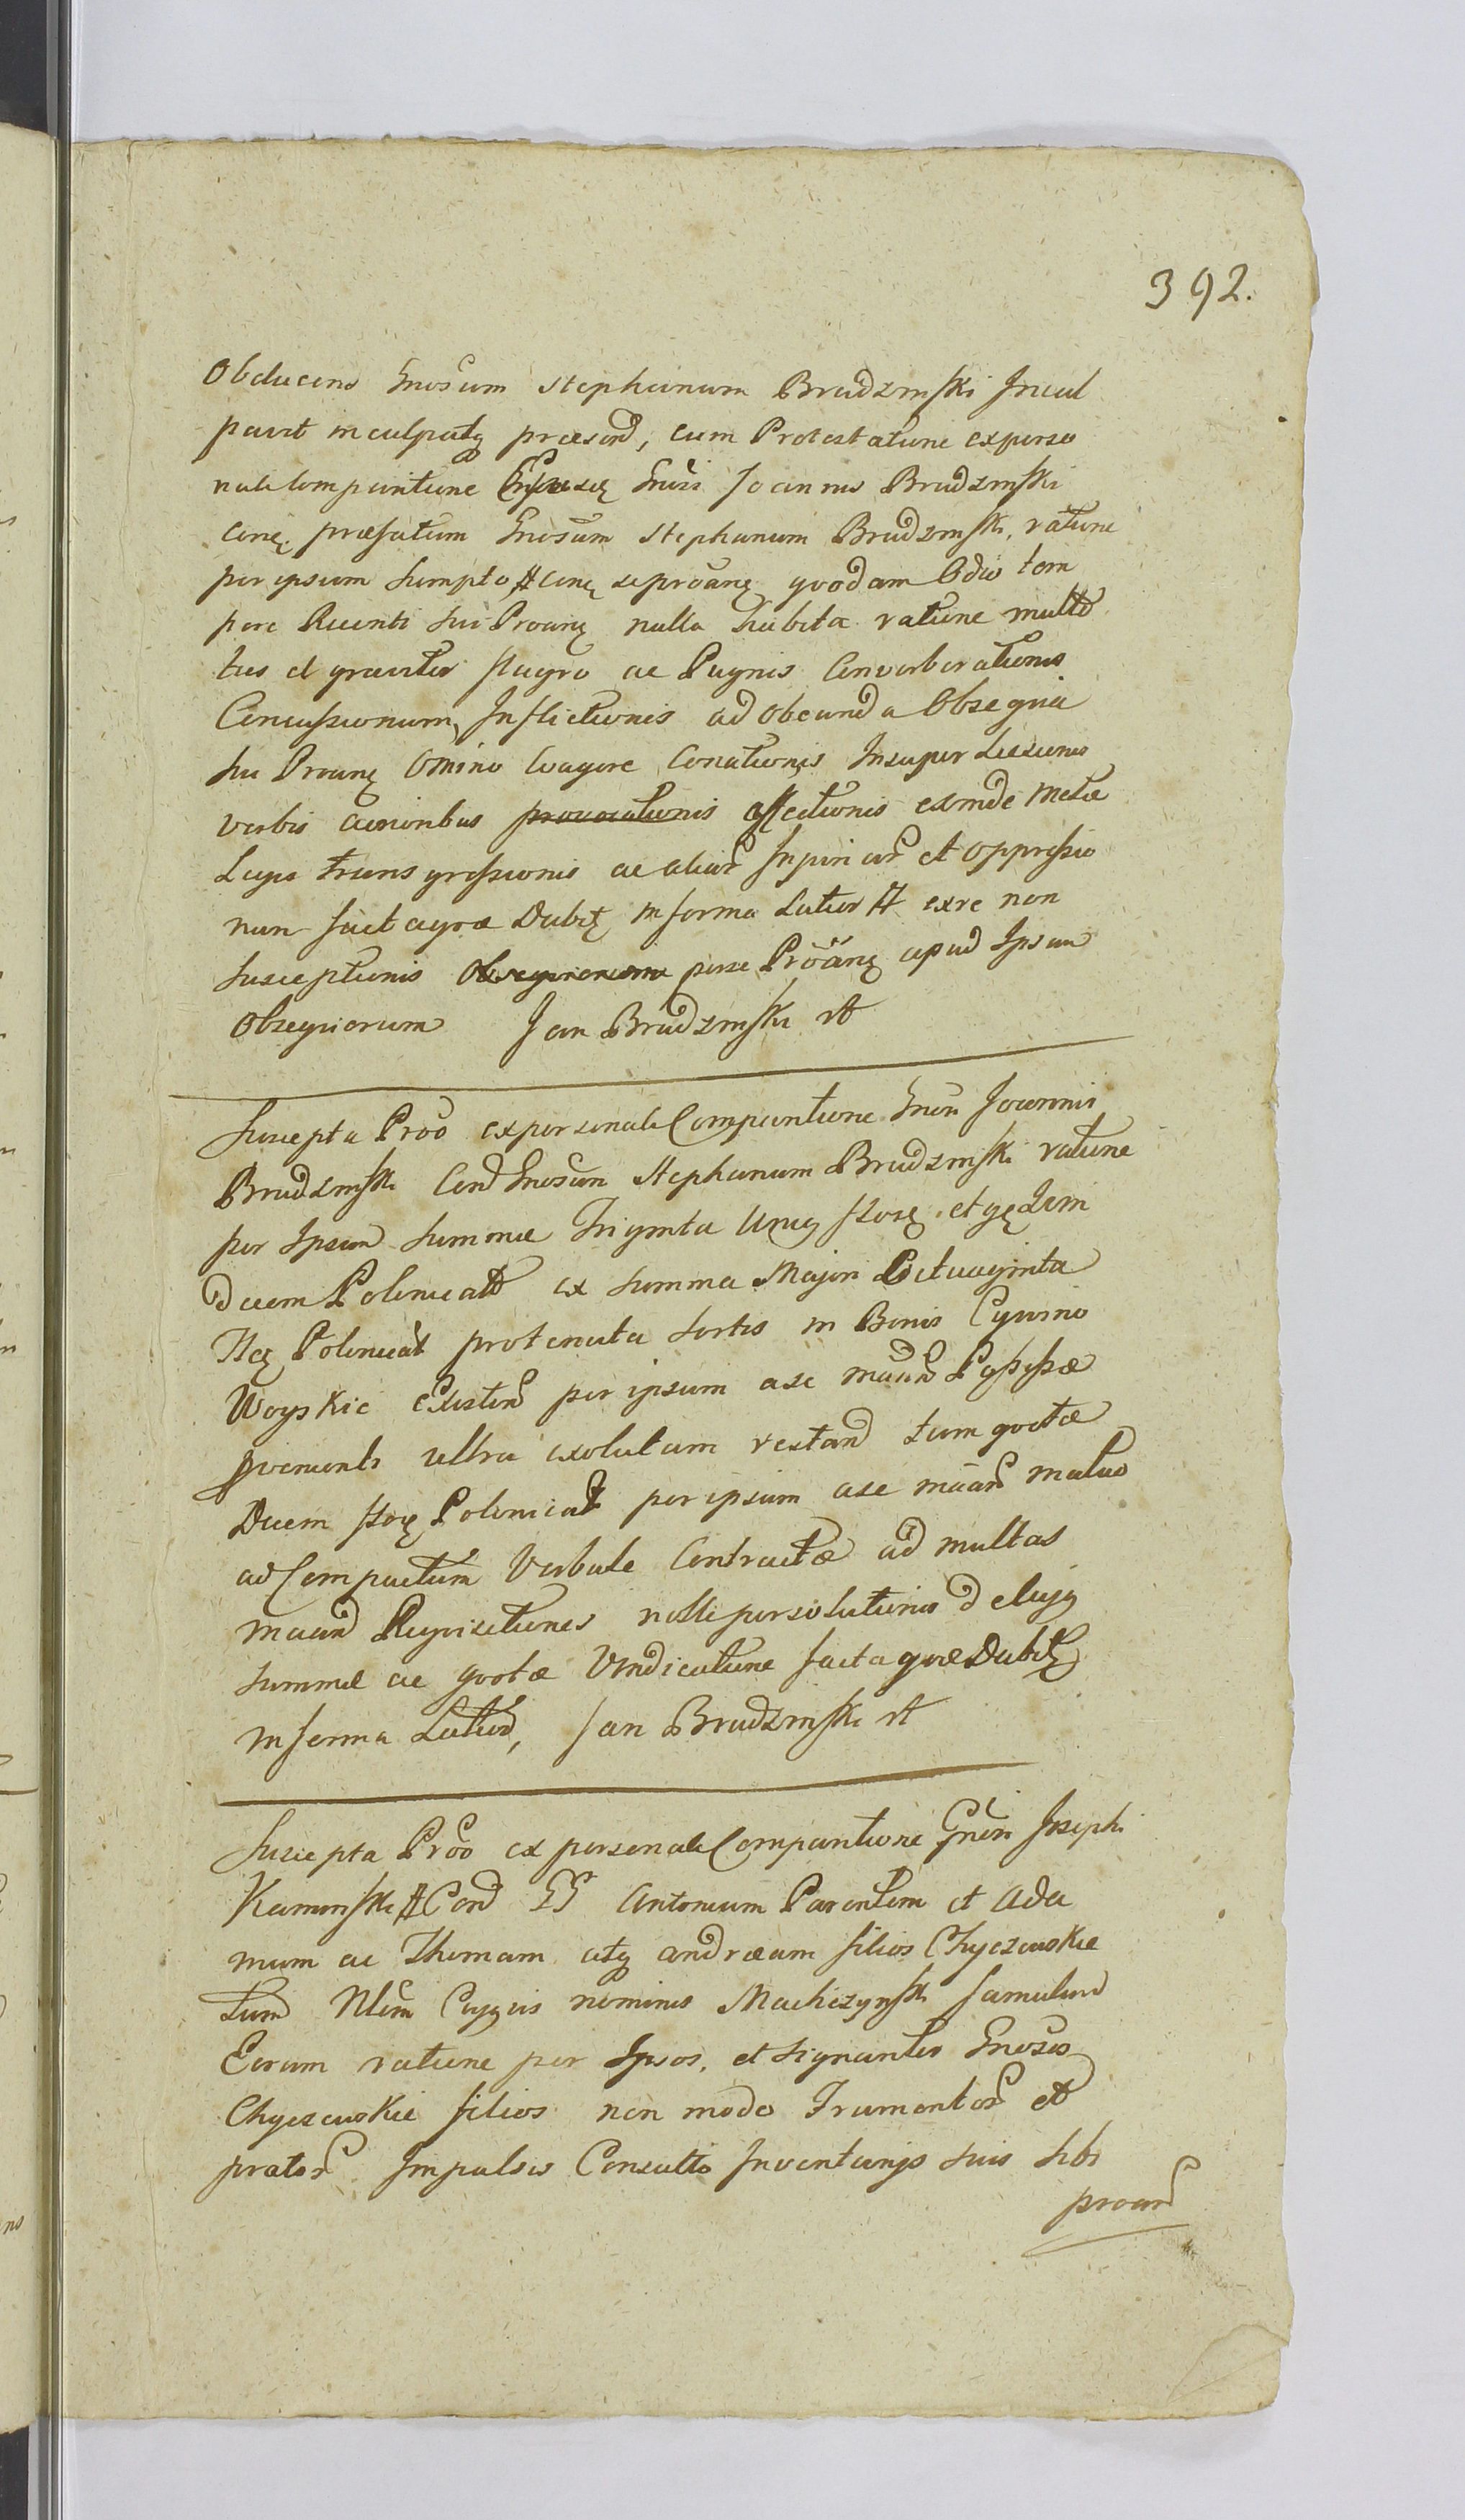 392.
Obducens Gnosum Stephanum Brudzinski Incul
pavit inculpatq praesend, cum Protestatione ex perso
nali Compantione Gnisi Joannis Brudzinski
conq. praefatum Gnosum Stephanum Brudzinski, ratione
per ipsum sumpto conq se proanq quodam Odio tem
pore Recenti sui Proanq nulla habita ratione multo
ties et graviter flagro ac Pugnis Converberationis
Concussionum, Inflictionis ad obeunda Obsequia
sui Proanq Omnino Coagere Conationis Insuper Laesionis
verbis acrioribus provocationis affectionis exinde Metae
Legis transgressionis ac aliar Injuriar et oppressio
num fact aqrae Dabit in forma Latior et ex re non
susceptionis per se Proanq apud Ipsum
Obsequiorum Jan Brudzinski
Suscepta Proo ex personali Compantione Gnosi Joannis
Brudzinski Cond Gnosum Stephanum Brudzinski ratione
per Ipsum Summae Triginta Unius flore, et gq Xcim
decem Polonicall ex summa Majori Octuaginta
flq Polonical protenuta sortis in Bonis
Woyskie existen per ipsum a se maan
ultra exolutam restand tum quotae
Decem flore Polonical per ipsum a se maan mutuo
ad Compactum Verbale Contractae ad multas
maand Requisitiones nolle persolutionis d ejusq
summae ac quotae Vindicatione facta qrae Dabit
in forma Latiod, Jan Brudzinski
Suscepta Proo ex personali Compantione Gnosi Josephi
Kaminski Cond GG Antonium Parentem et Ada
mum ac Thomam atq andraeam filios Chyczewskie
tum Nlem Cujq vis nominis Machczynski famulum
Eorum ratione per Ipsos, et signanter Gnosos
Chyczewskie filios non modo Frumentor et
prator Impulsis Consulto Inventarijs suis sibi
proan